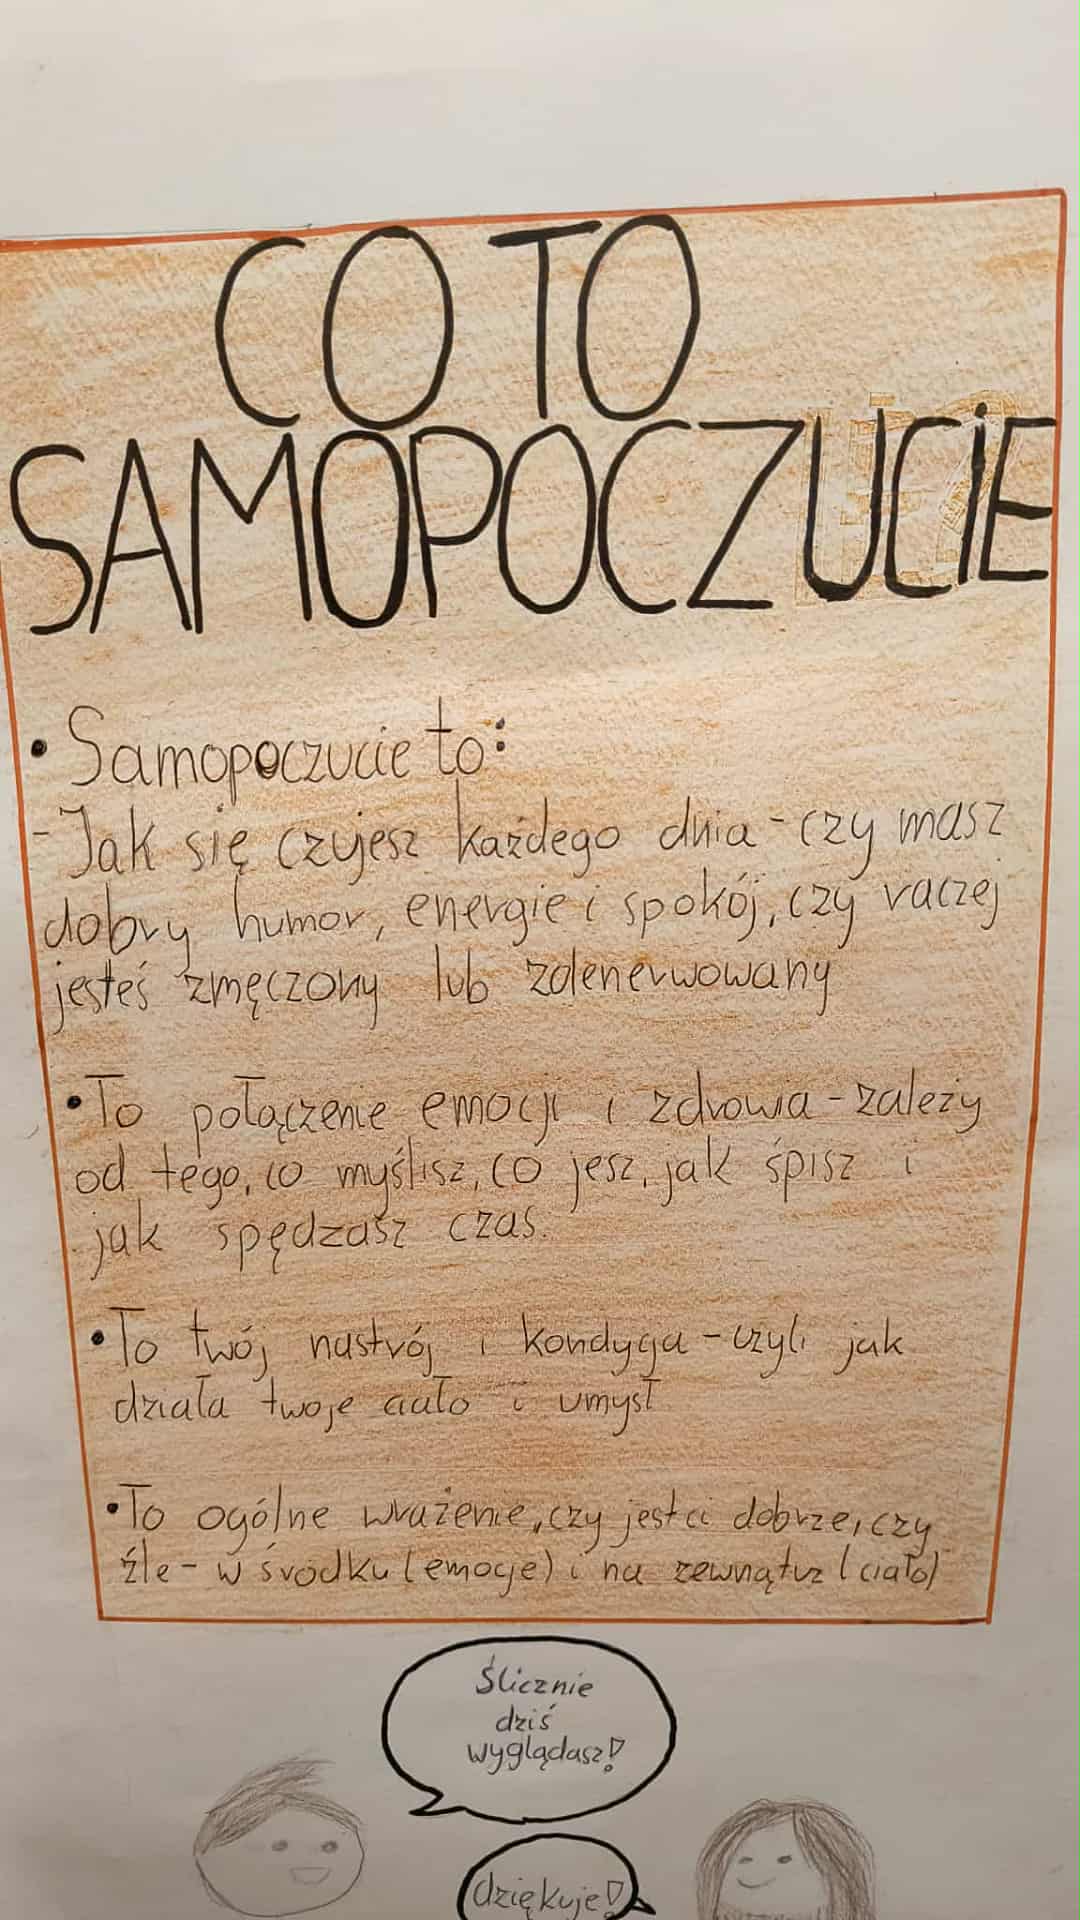 CO TO
SAMOPOCZUCIE
• Samopoczucie to:
- Jak się czujesz każdego dnia - czy masz
dobry humor, energie i spokój, czy raczej
jesteś zmęczony lub zdenerwowany
• To połączenie emocji i zdrowia - zależy
od tego, co myślisz, co jesz, jak śpisz i
jak spędzasz czas.
• To twój nastrój i kondycja - czyli jak
działa twoje ciało i umysł
• To ogólne wrażenie, czy jest ci dobrze, czy
źle - w środku (emocje) i na zewnątrz (ciało)
Ślicznie
dziś
wyglądasz!
dziękuje!